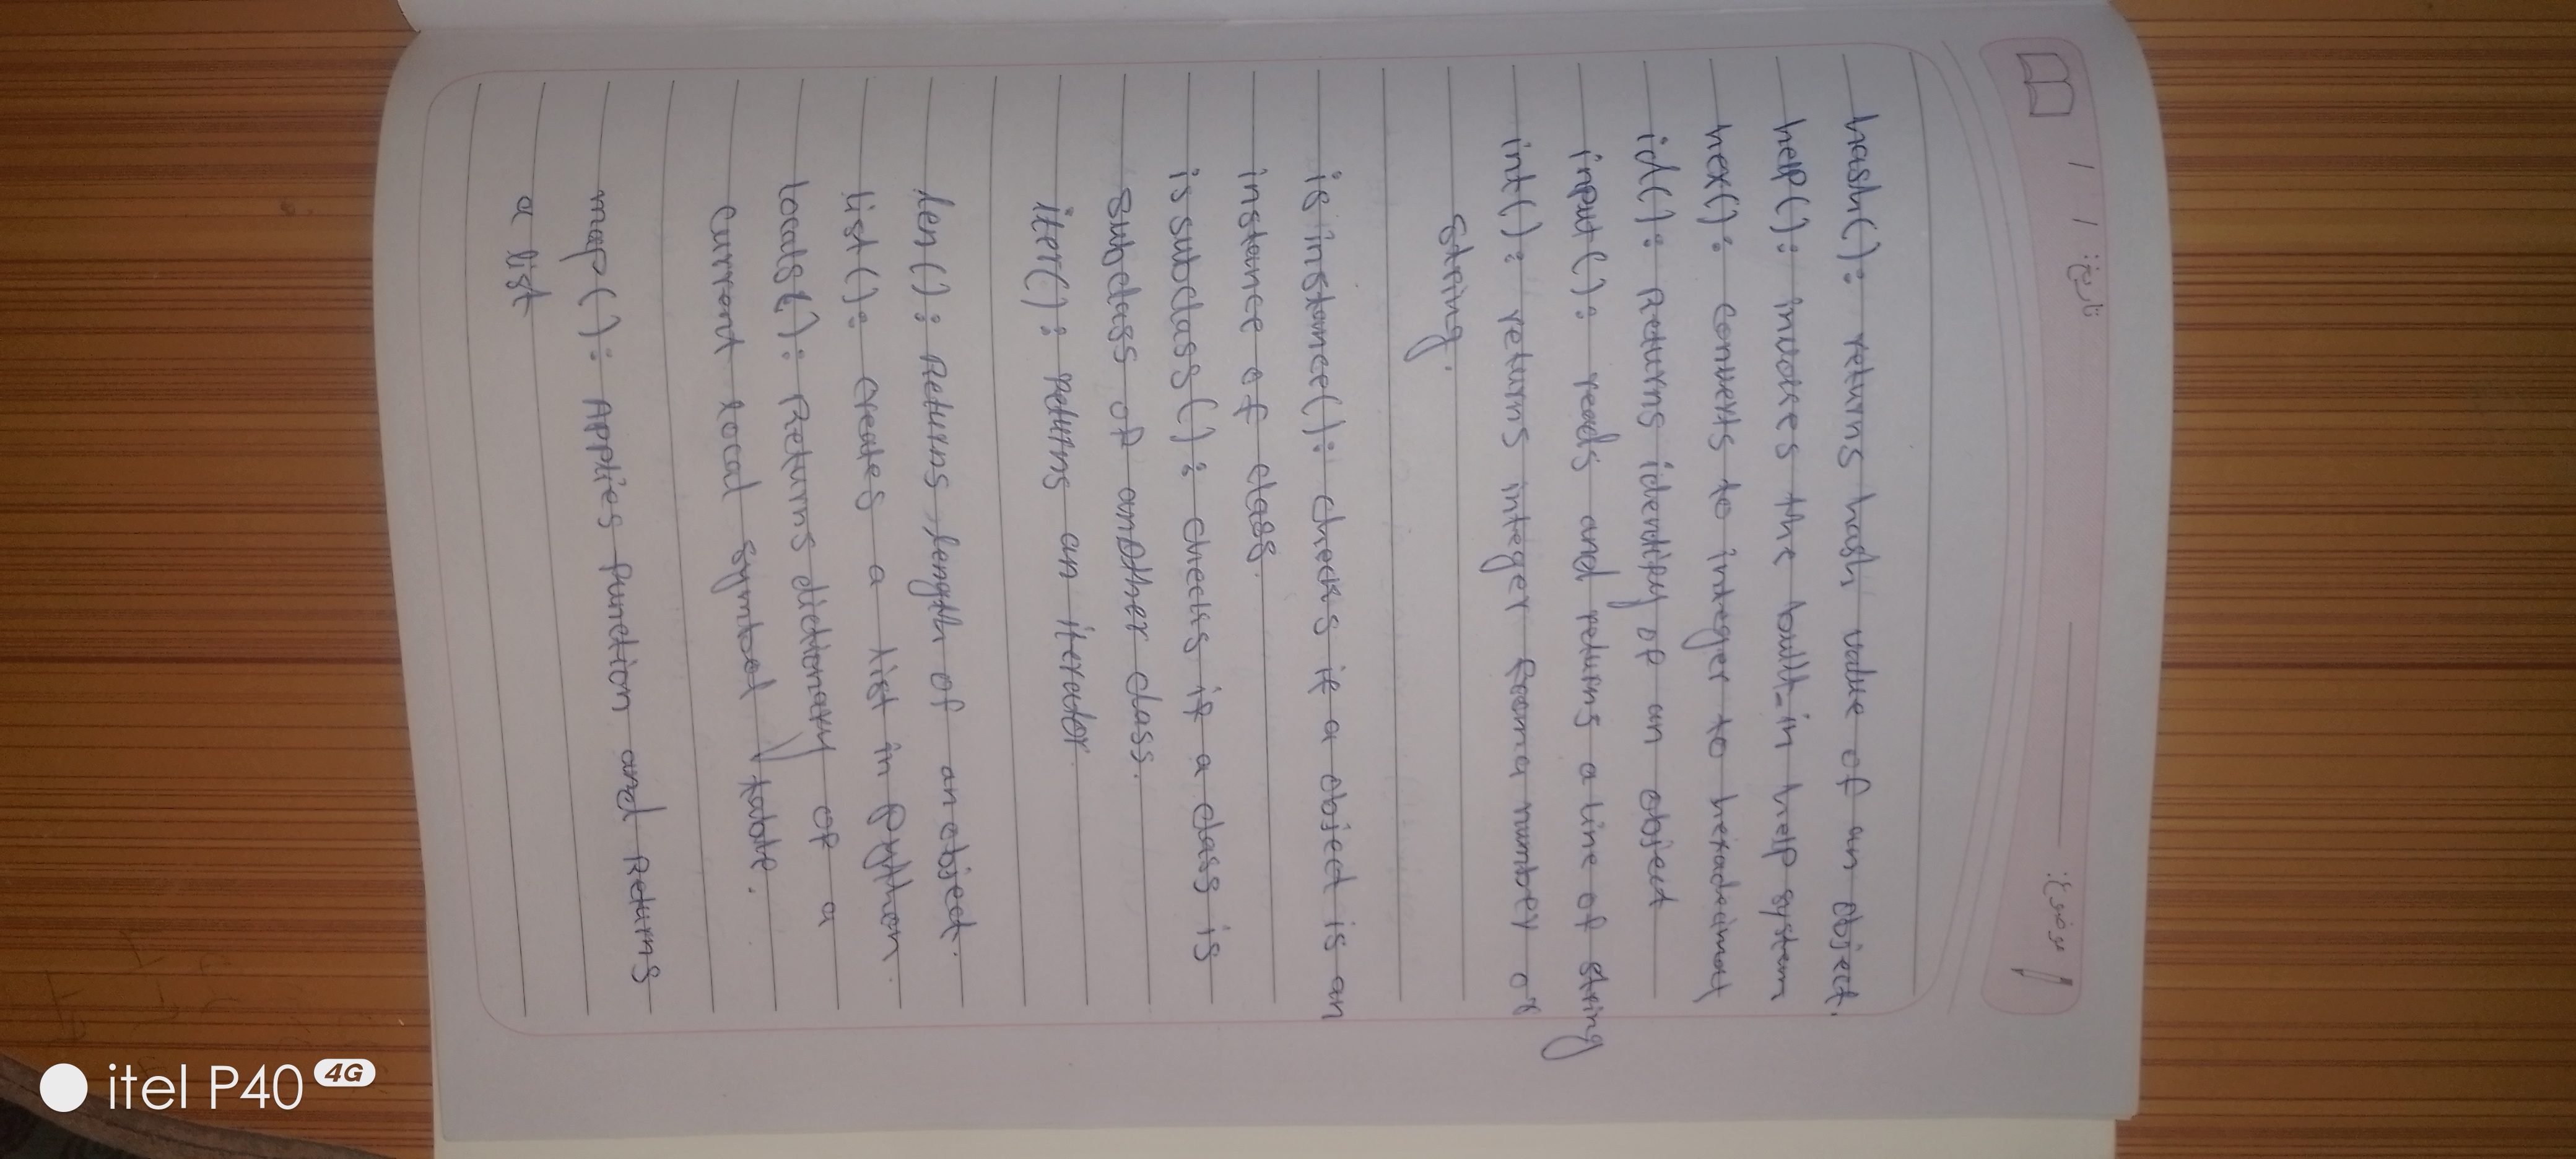 تاریخ: / /
موضوع:
hash(): returns hash value of an object.
help(): invokes the built-in help system
hex(): converts to integer to hexadecimal
id(): Returns identify of an object
input(): reads and returns a line of string
int(): returns integer from a number or
string.
is instance(): checks if a object is an
instance of class.
is subclass(): checks if a class is
subclass of another class.
iter(): returns an iterator.
len(): Returns length of an object.
list(): creates a list in python.
locals(): Returns dictionary of a
current local symbol table.
map(): Applies function and Returns
a list
itel P40 4G